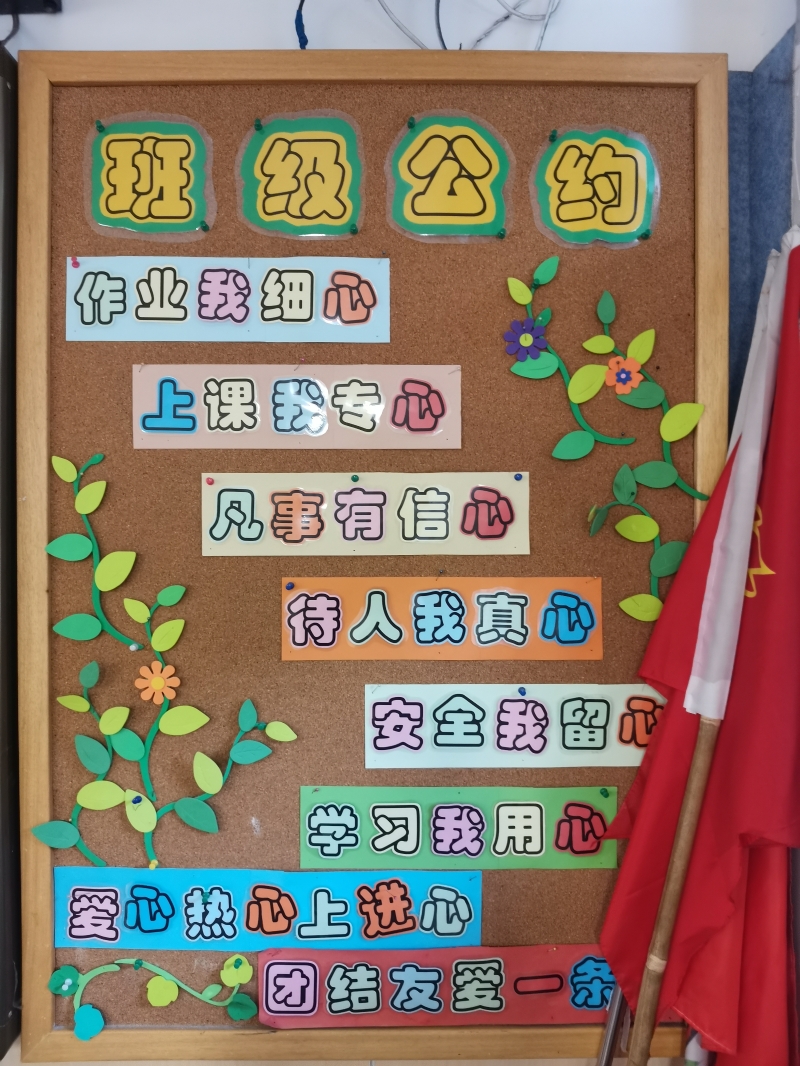 班级公约
作业我细心
上课我专心
凡事有信心
待人我真心
安全我留心
学习我用心
爱心热心上进心
团结友爱一条